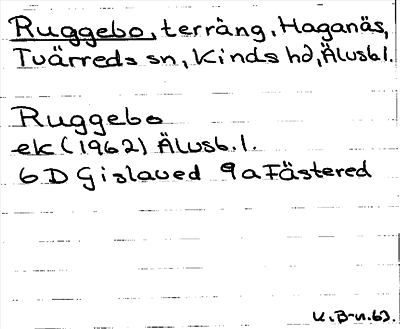 Ruggebo, terräng, Haganäs,
Tvärreds sn, Kinds hd, Älvsb.l.
Ruggebo
ek (1962) Älvsb.l.
6D Gislaved 9a Fästered
K.B-n.63.